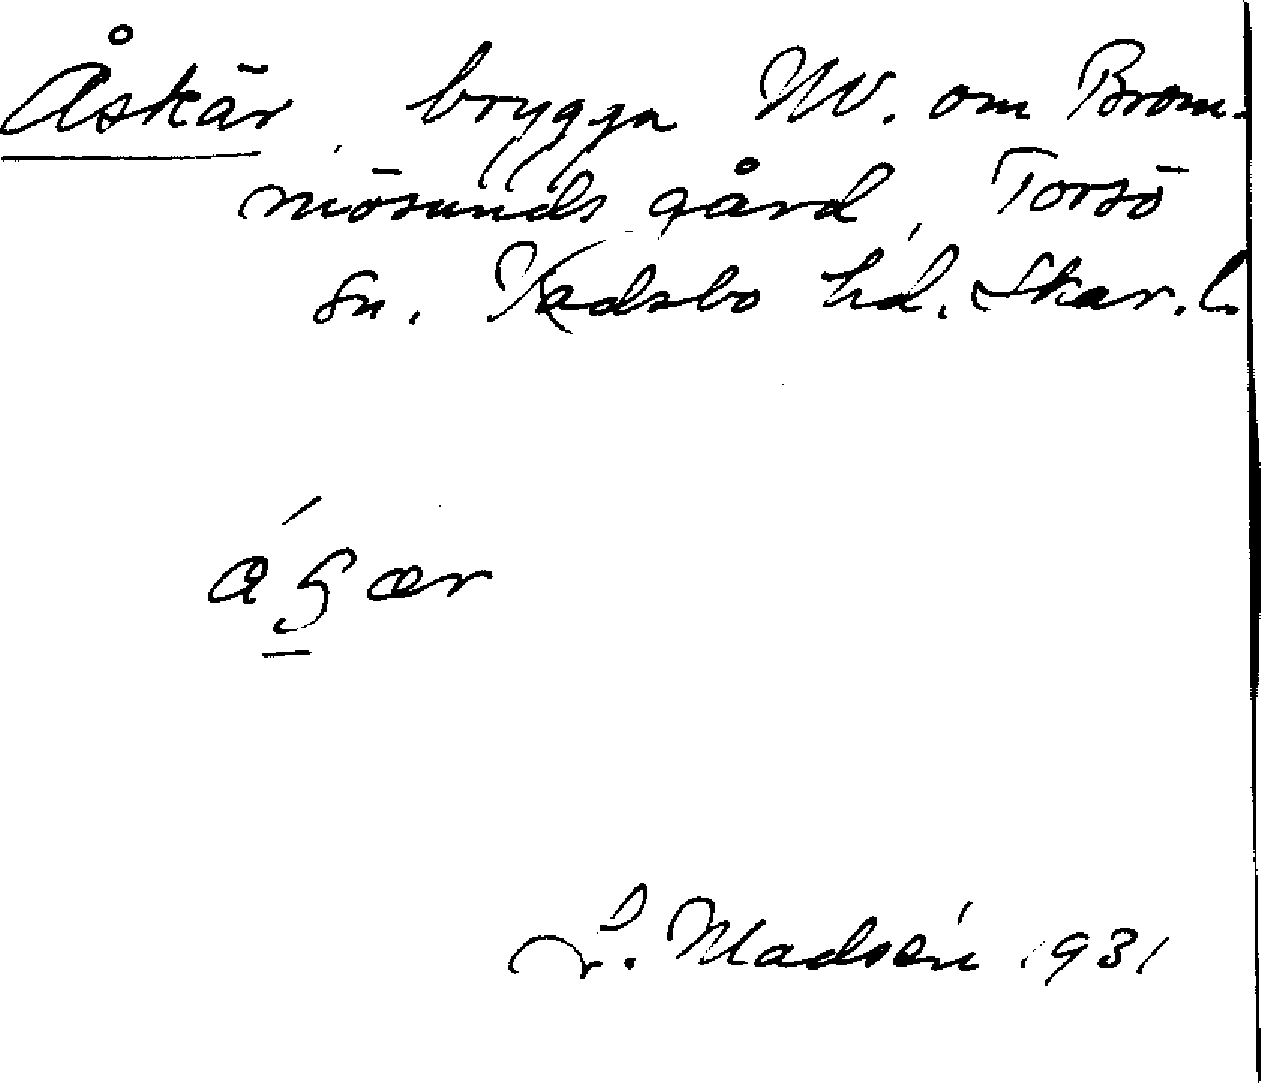 Åskär, brygga NV. om Brom-
mösunds gård, Torsö
sn. Vadsbo hd. Skar. l.
L. Madsén 1931